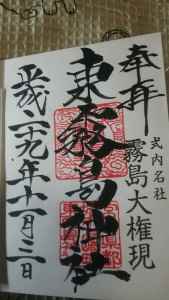 奉拝
式内名社
霧島大権現
東霧島神社
平成二十九年十一月三日